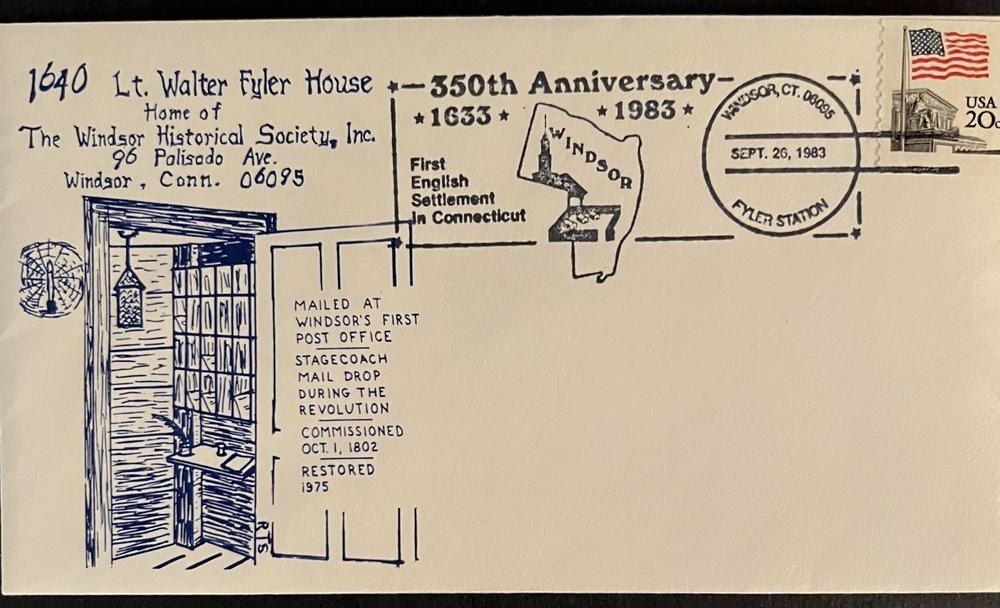 1640 Lt. Walter Fyler House
Home of
The Windsor Historical Society, Inc.
96 Palisado Ave.
Windsor, Conn. 06095
350th Anniversary
1633 1983
First
English
Settlement
in Connecticut
WINDSOR
WINDSOR, CT. 06095
SEPT. 26, 1983
FYLER STATION
USA
20c
MAILED AT
WINDSOR'S FIRST
POST OFFICE
STAGECOACH
MAIL DROP
DURING THE
REVOLUTION
COMMISSIONED
OCT. 1, 1802
RESTORED
1975
RTS